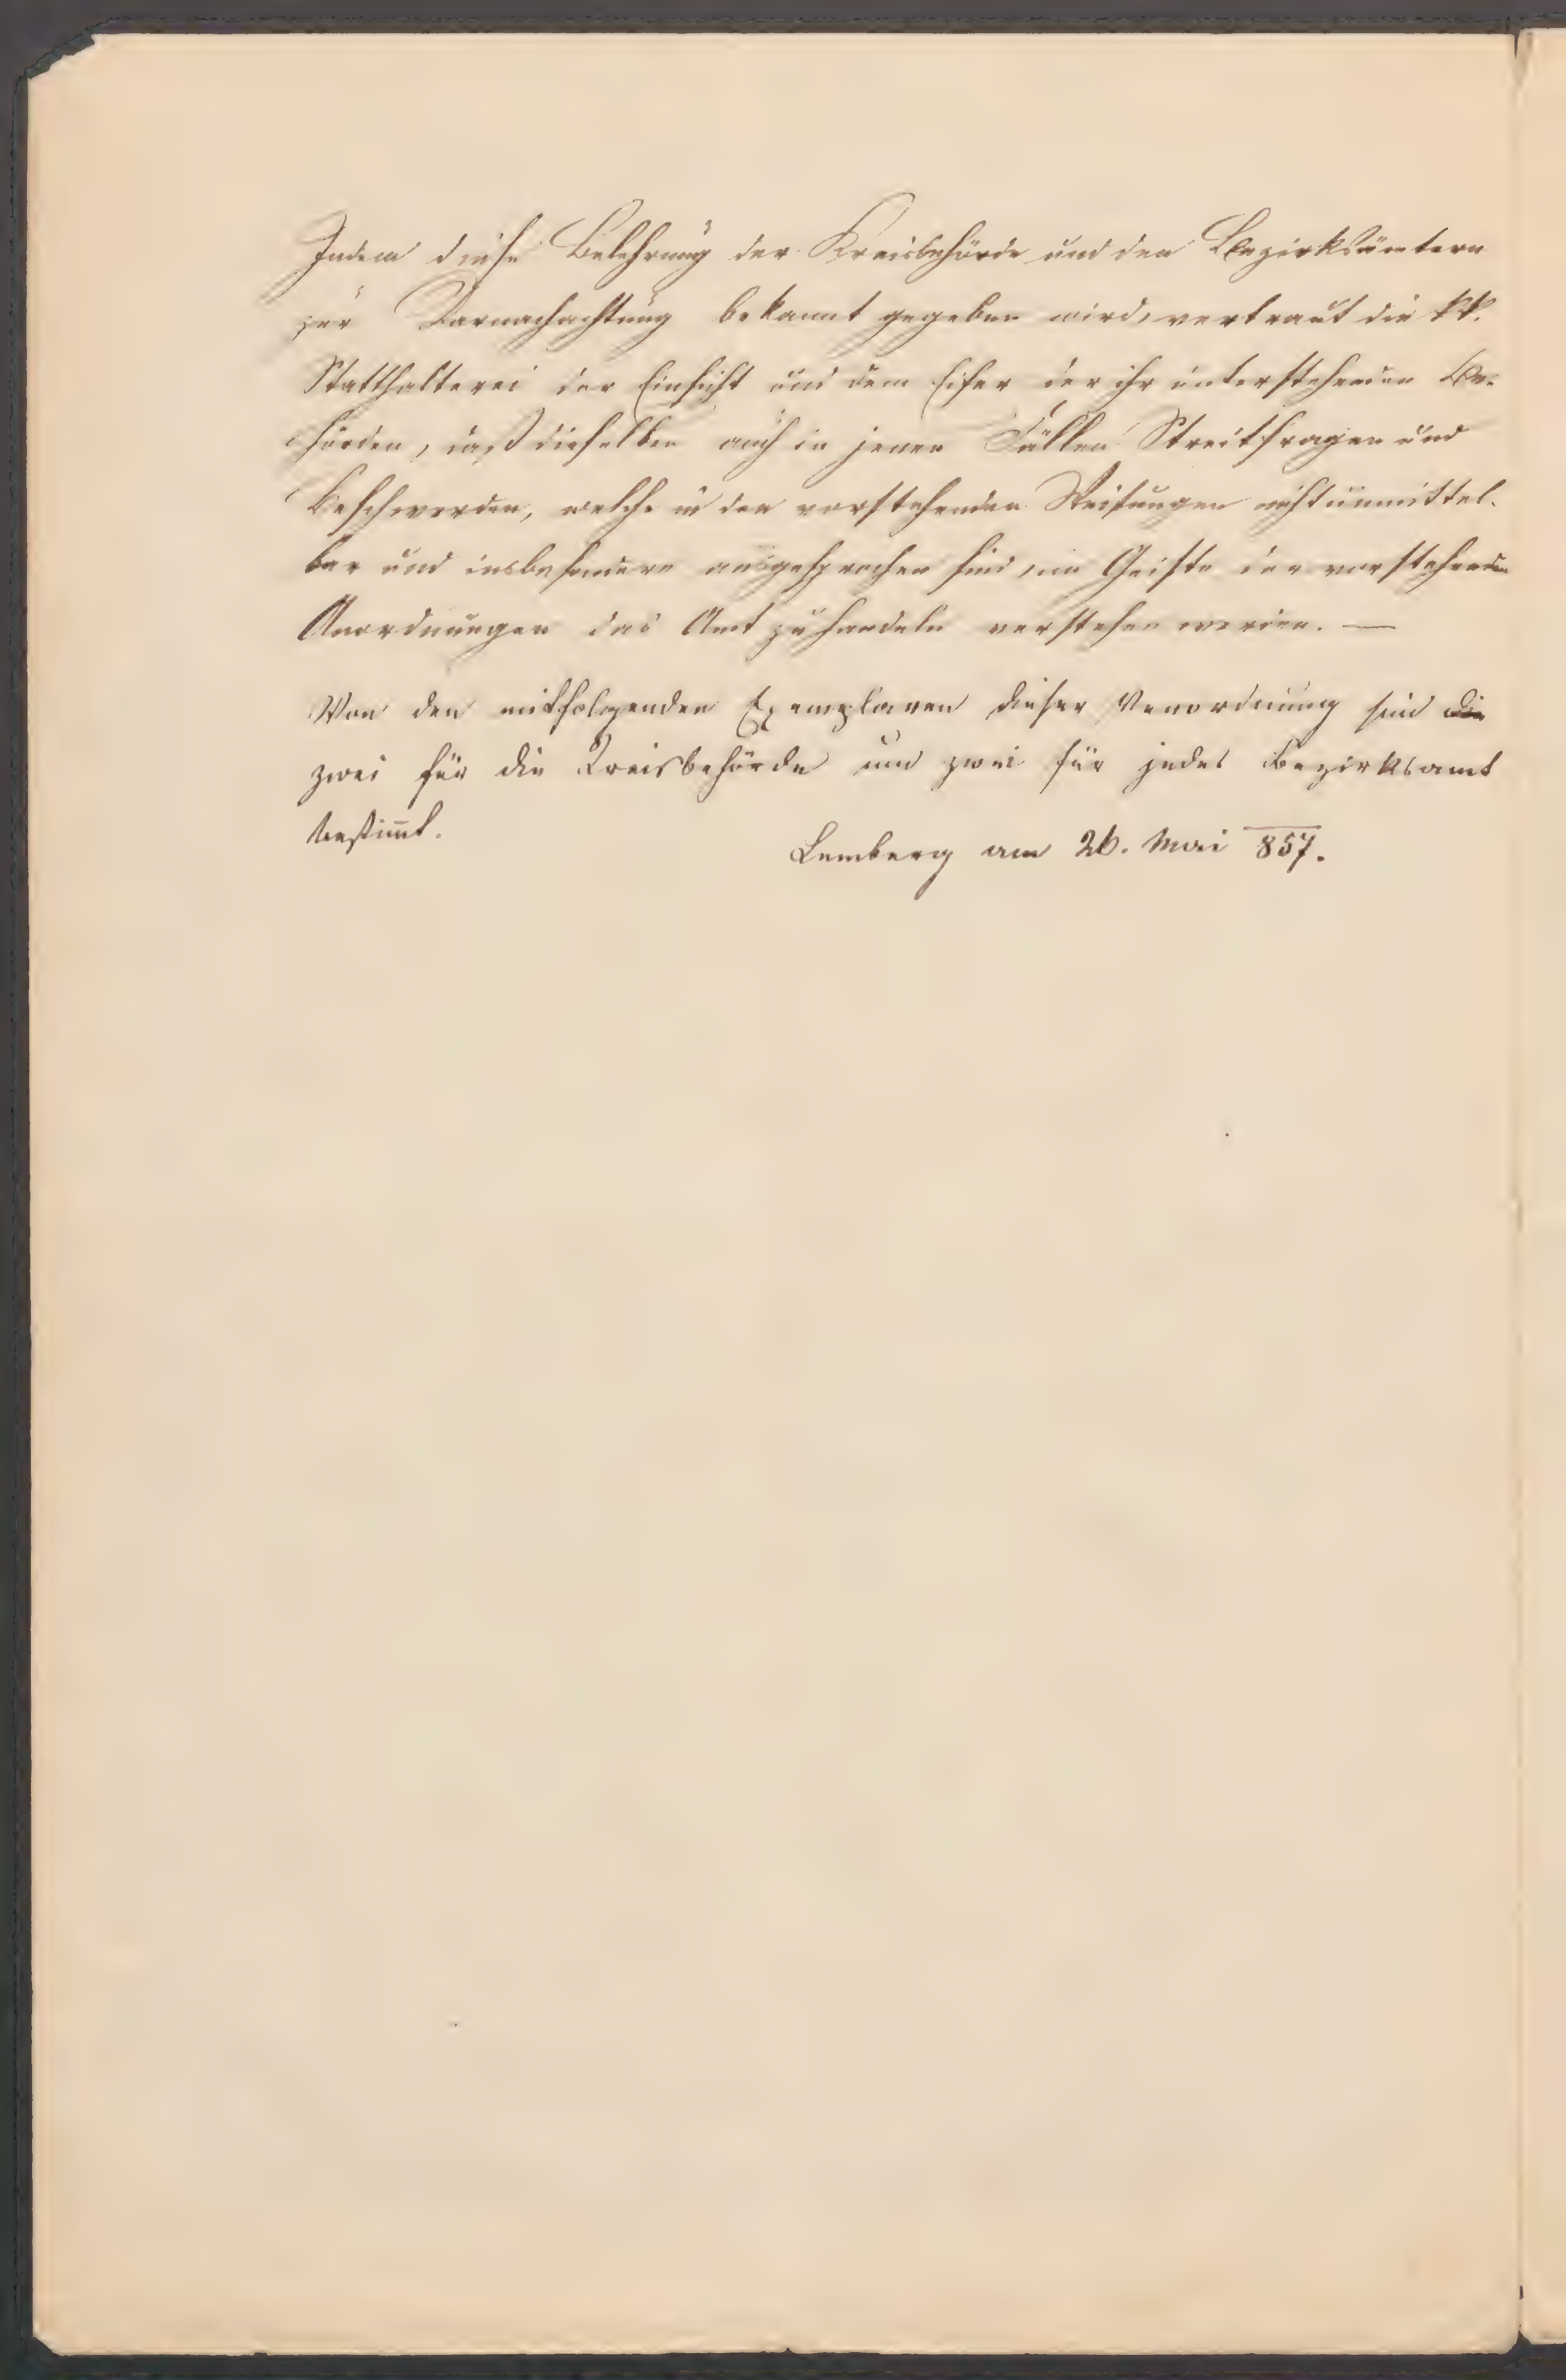 Indem diese Belehrung der Kreisbehörde und den Bezirksämtern
zur Darnachachtung bekannt gegeben wird, vertraut die kk.
Statthalterei der Einsicht und dem Eifer der ihr unterstehenden Be-
hörden, daß dieselben auch in jenen Fällen Streitfragen und
Beschwerden, welche in den vorstehenden Weisungen nicht unmittel-
bar und insbesondere ausgesprochen sind, im Geiste der vorstehenden
Anordnungen das Amt zu handeln verstehen werden. —
Von den mitfolgenden Exemplaren dieser Verordnung sind die
zwei für die Kreisbehörde und zwei für jedes Bezirksamt
bestim̅t.
Lemberg am 26. Mai 857.